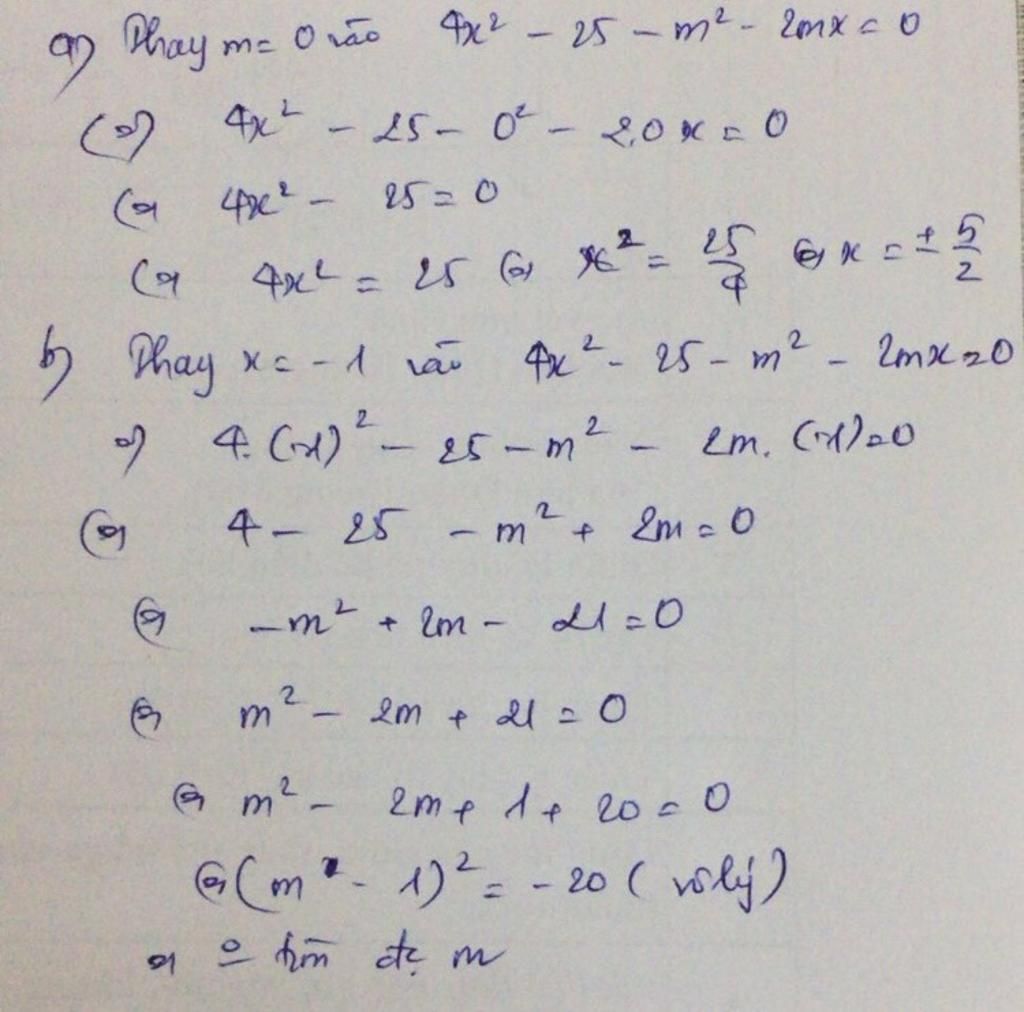 a) Thay m = 0 vào 4x² - 25 - m² - 2mx = 0
⇔ 4x² - 25 - 0² - 2.0x = 0
⇔ 4x² - 25 = 0
⇔ 4x² = 25 ⇔ x² = 25/4 ⇔ x = ± 5/2
b) Thay x = -1 vào 4x² - 25 - m² - 2mx = 0
⇒ 4.(-1)² - 25 - m² - 2m.(-1) = 0
⇔ 4 - 25 - m² + 2m = 0
⇔ -m² + 2m - 21 = 0
⇔ m² - 2m + 21 = 0
⇔ m² - 2m + 1 + 20 = 0
⇔ (m - 1)² = -20 (vô lý)
⇒ o tìm đc m